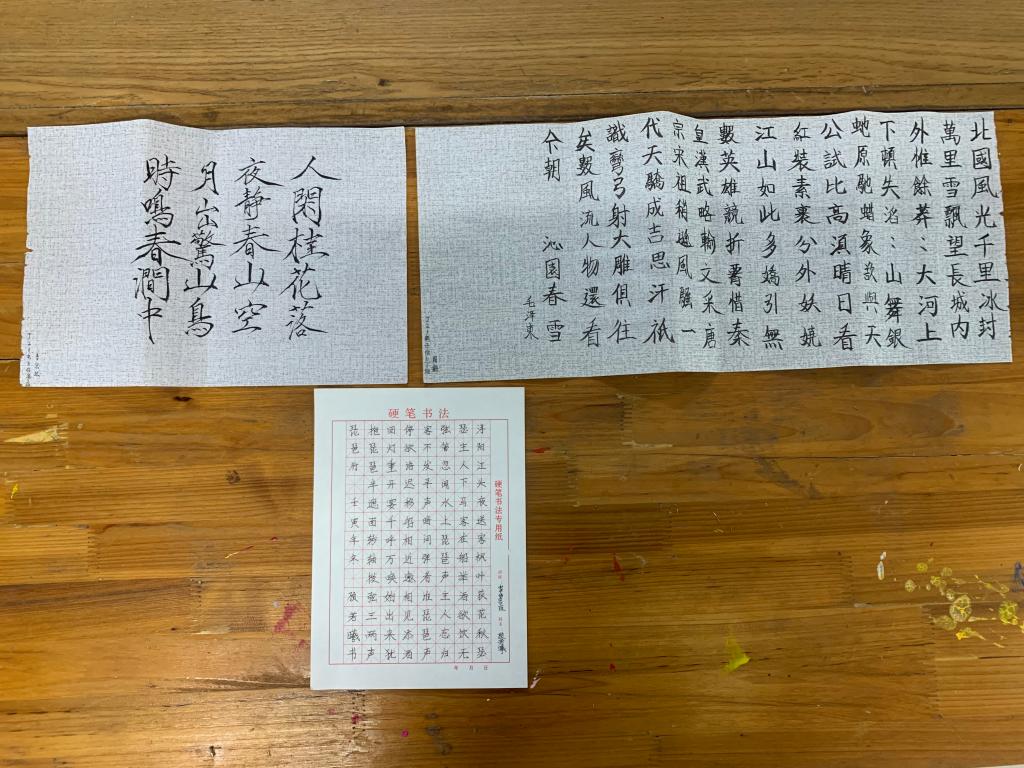 北國風光千里冰封
萬里雪飄望長城内
外惟餘莽〻大河上
下頓失滔〻山舞銀
虵原馳蜡象欲與天
公試比高須晴日看
紅裝素裹分外妖娆
江山如此多嬌引無
數英雄競折腰惜秦
皇漢武略輸文采唐
宗宋祖稍遜風騷一
代天驕成吉思汗祇
識彎弓射大雕俱往
矣數風流人物還看
今朝 沁園春雪
毛泽东
人閑桂花落
夜静春山空
月出驚山鳥
時鳴春澗中
硬笔书法
硬笔书法专用纸
浔阳江头夜送客枫叶荻花秋瑟
瑟主人下马客在船举酒欲饮无
弦管忽闻水上琵琶声主人忘归
客不发寻声暗问弹者谁琵琶声
停欲语迟移船相近邀相见添酒
回灯重开宴千呼万唤始出来犹
抱琵琶半遮面转轴拨弦三两声
琵琶行 壬寅年冬 若曦书
年 月 日